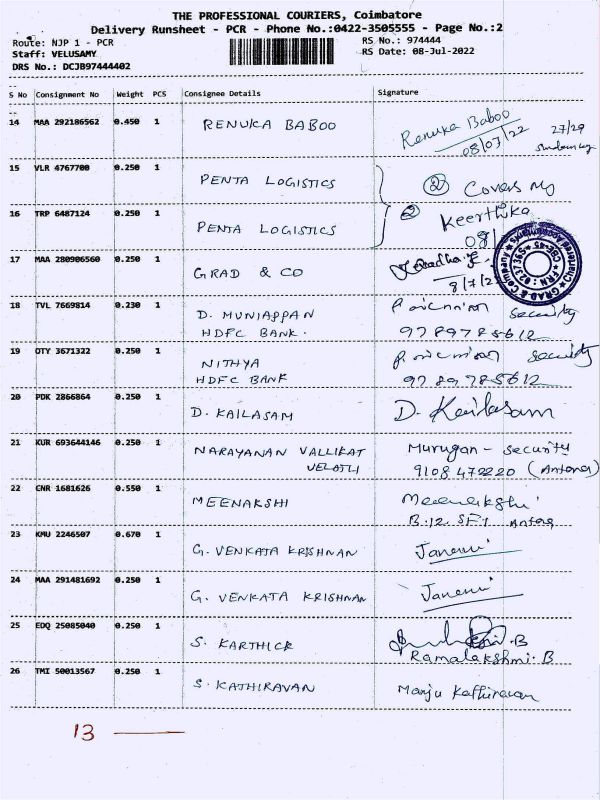 THE PROFESSIONAL COURIERS, Coimbatore
Delivery Runsheet - PCR - Phone No.:0422-3505555 - Page No.:2
Route: NJP 1 - PCR
RS No.: 974444
Staff: VELUSAMY
RS Date: 08-Jul-2022
DRS No.: DCJB97444402
S No Consignment No Weight PCS Consignee Details Signature
14 MAA 292186562 0.450 1 RENUKA BABOO Renuka Baboo
08/07/22 27/29
15 VLR 4767700 0.250 1 PENTA LOGISTICS ② Covers
16 TRP 6487124 0.250 1 PENTA LOGISTICS ② Keerthika
08/
17 MAA 280906560 0.250 1 GRAD & CO
8/7/2
18 TVL 7669814 0.230 1 D. MUNIAPPAN security
HDFC BANK. 9789785612
19 OTY 3671322 0.250 1 NITHYA security
HDFC BANK 9789785612
20 PDK 2866864 0.250 1 D. KAILASAM D. Kailasam
21 KUR 693644146 0.250 1 NARAYANAN VALLIKAT Murugan - security
VELATLI 9108472220
22 CNR 1681626 0.550 1 MEENAKSHI Meenakshi
B.12. SF1
23 KMU 2246507 0.670 1 G. VENKATA KRISHNAN
24 MAA 291481692 0.250 1 G. VENKATA KRISHNAN
25 EDQ 25085040 0.250 1 S. KARTHICK
Ramalakshmi. B
26 TMI 50013567 0.250 1 S. KATHIRAVAN Manju Kathiravan
13